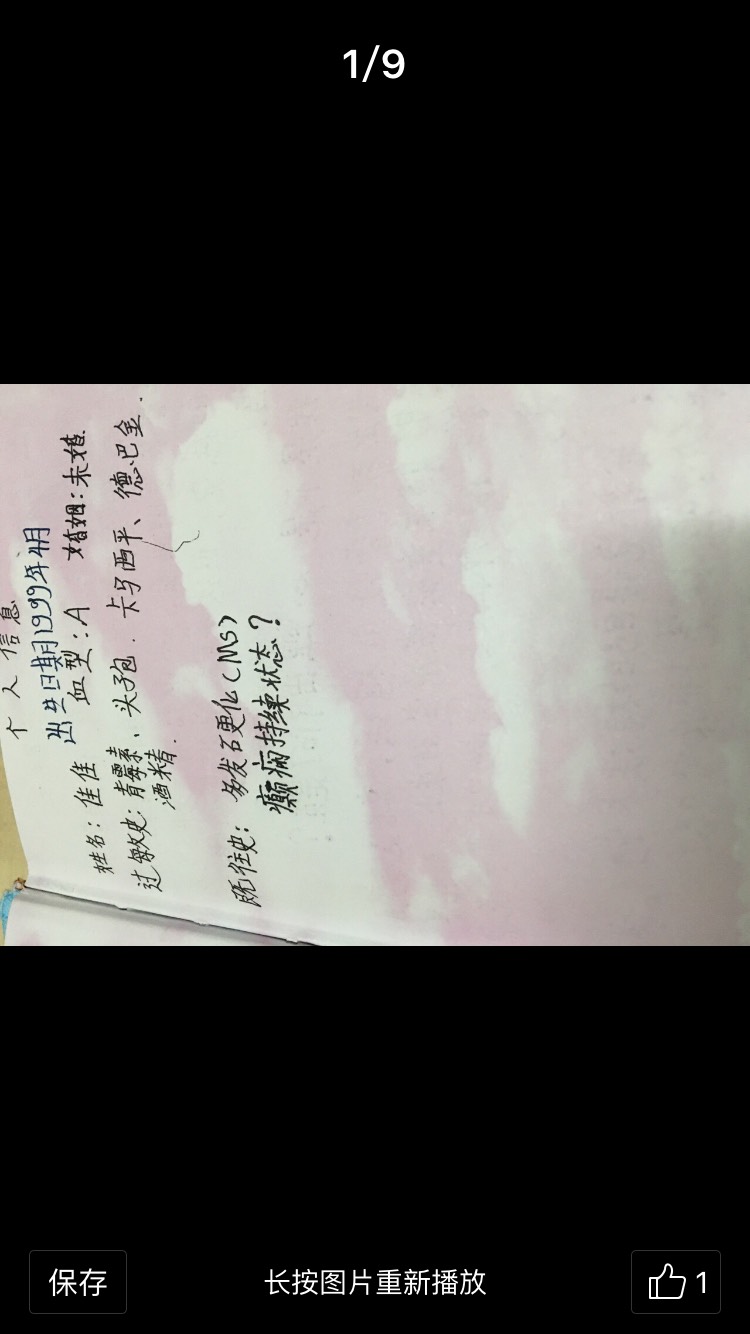 1/9
个人信息
出生日期1999年4月
姓名：佳佳 血型：A 婚姻：未婚.
过敏史：青霉素、头孢．卡马西平、德巴金．
酒精．
既往史：多发石更化(MS)
癫痫持续状态？
保存 长按图片重新播放 1